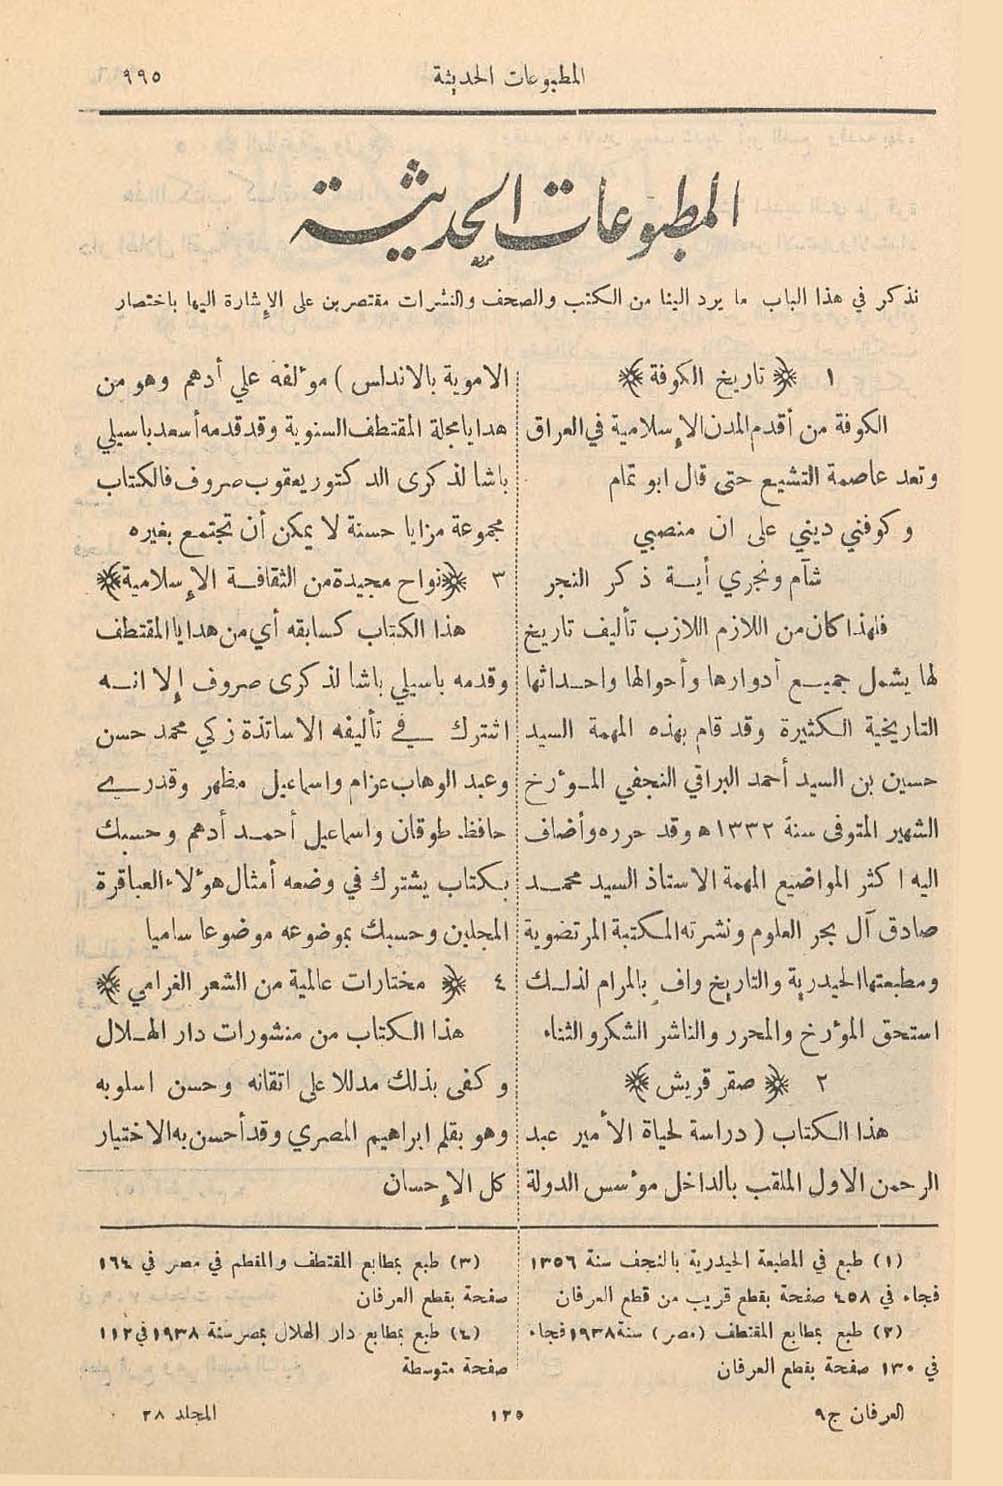 المطبوعات الحديثة
٩٩٥
المطبوعات الحديثة
نذكر في هذا الباب ما يرد الينا من الكتب والصحف والنشرات مقتصرين على الإشارة اليها باختصار
١ ﴿ تاريخ الكوفة ﴾
الكوفة من أقدم المدن الإسلامية في العراق
وتعد عاصمة التشيع حتى قال ابو تمام
وكوفني ديني على ان منصبي
شآم ونجري أية ذكر النجر
فلهذا كان من اللازم اللازب تأليف تاريخ
لها يشمل جميع أدوارها وأحوالها واحداثها
التاريخية الكثيرة وقد قام بهذه المهمة السيد
حسين بن السيد أحمد البراقي النجفي المؤرخ
الشهير المتوفى سنة ١٣٣٢ ه وقد حرره وأضاف
اليه اكثر المواضيع المهمة الاستاذ السيد محمد
صادق آل بحر العلوم ونشرته المكتبة المرتضوية
ومطبعتها الحيدرية والتاريخ واف بالمرام لذلك
استحق المؤرخ والمحرر والناشر الشكر والثناء
٢ ﴿ صقر قريش ﴾
هذا الكتاب ( دراسة لحياة الأمير عبد
الرحمن الاول الملقب بالداخل مؤسس الدولة
الاموية بالاندلس ) مؤلفه علي أدهم وهو من
هدايا مجلة المقتطف السنوية وقد قدمه أسعد باسيلي
باشا لذكرى الدكتور يعقوب صروف فالكتاب
مجموعة مزايا حسنة لا يمكن أن تجتمع بغيره
٣ ﴿نواح مجيدة من الثقافة الإسلامية﴾
هذا الكتاب كسابقه أي من هدايا المقتطف
وقدمه باسيلي باشا لذكرى صروف إلا انه
اشترك في تأليفه الاساتذة زكي محمد حسن
وعبد الوهاب عزام واسماعيل مظهر وقدري
حافظ طوقان واسماعيل أحمد أدهم وحسبك
بكتاب يشترك في وضعه أمثال هؤلاء العباقرة
المجلين وحسبك بموضوعه موضوعا ساميا
٤ ﴿ مختارات عالمية من الشعر الغرامي ﴾
هذا الكتاب من منشورات دار الهلال
وكفى بذلك مدللا على اتقانه وحسن اسلوبه
وهو بقلم ابراهيم المصري وقد أحسن به الاختيار
كل الإحسان
(١) طبع في المطبعة الحيدرية بالنجف سنة ١٣٥٦
فجاء في ٤٥٨ صفحة بقطع قريب من قطع العرفان
(٢) طبع بمطابع المقتطف (مصر) سنة ١٩٣٨ فجاء
في ١٣٠ صفحة بقطع العرفان
(٣) طبع بمطابع المقتطف والمقطم في مصر في ١٦٤
صفحة بقطع العرفان
(٤) طبع بمطابع دار الهلال بمصر سنة ١٩٣٨ في ١١٢
صفحة متوسطة
العرفان ج٩
١٢٥
المجلد ٢٨